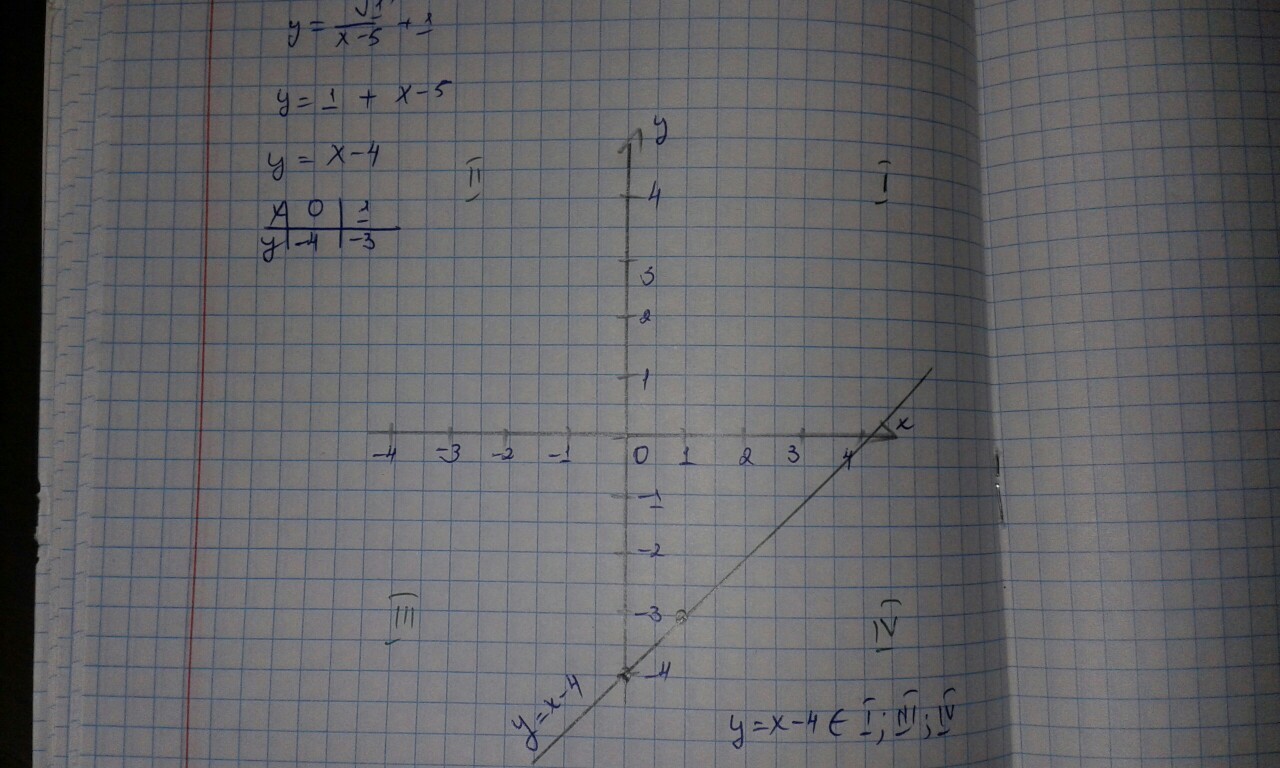 y = √1/(x-5) + 1
y = 1 + x-5
y = x-4
x 0 1
y -4 -3
II
I
y
4
3
2
1
x
-4 -3 -2 -1 0 1 2 3 4
-1
-2
-3
-4
III
IV
y=x-4
y=x-4 ∈ I; III; IV